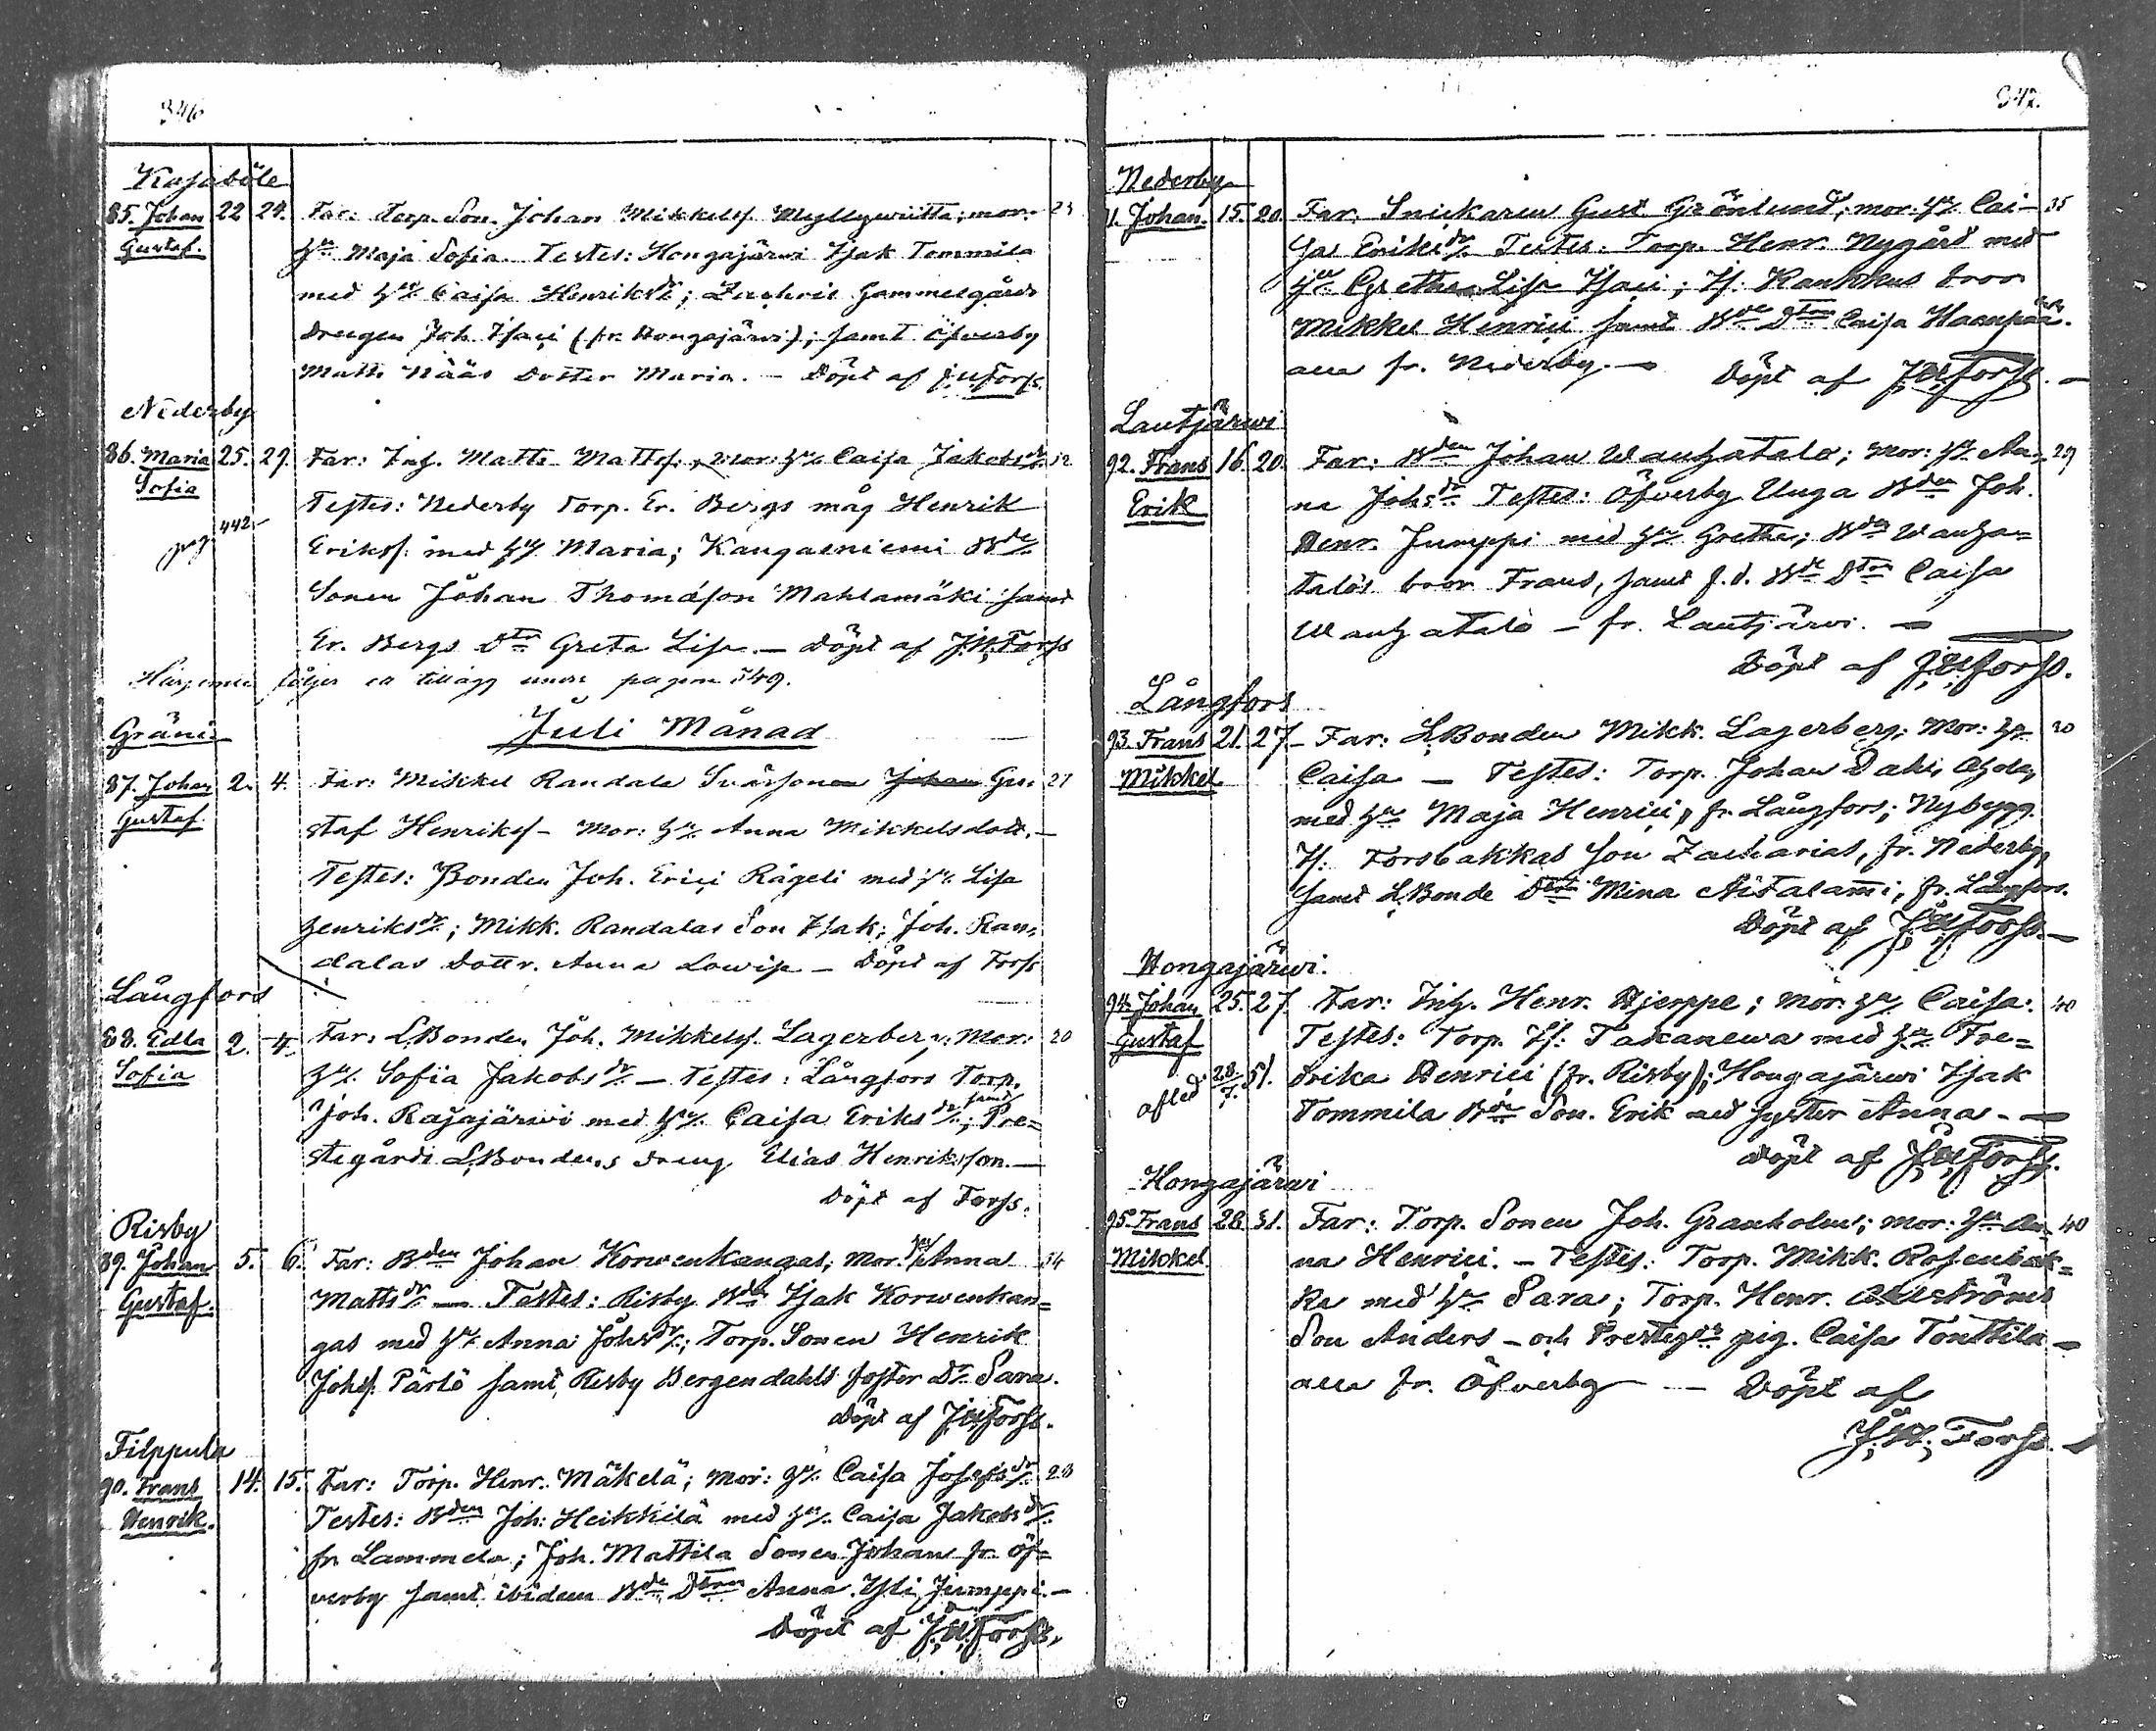 346
Kasaböle
85. Johan 22 24. Far: Torp. Son. Johan Mikkelsf. Myllywiitta; mor: 23
Gustaf. Hu Maja Sofia. Testes: Hongajärwi Isak Tommila
med Hu Caisa Henriksdr; Zachris Gammelgårds
drengen Joh. Isaci (fr. Hongajärwi); samt Öfverby
Matts Nääs dotter Maria. — Döpt af J:W:Forss.
Nederby
86. Maria 25. 29. Far: Inh. Matts Mattsf.; Mor: Hu Caisa Jakobsdr 32
Sofia Testes: Nederby Torp. Er. Bergs måg Henrik
pag 442. Eriksf. med Hu Maria; Kangasniemi Bde
Sonen Johan Thomasson Mahlamäki samt
Er. Bergs Dtr Greta Lisa. — Döpt af J.W.Forss
följer ett tillägg pagina 349.
Juli Månad
Gränö
87. Johan 2. 4. Far: Mikkel Randala Svärsonen Johan Gu- 27
Gustaf staf Henriksf — Mor: Hu Anna Mikkelsdotr. —
Testes: Bonden Joh. Erici Rågeli med Hu Lisa
Henriksdr; Mikk. Randalas Son Isak; Joh. Ran-
dalas Dottr. Anna Lowisa — Döpt af Forss
Långfors
88. Edla 2. 4. Far: LBonden Joh. Mikkelsf. Lagerberg; Mor: 20
Sofia Hu Sofia Jakobsdr — Testes: Långfors Torp.
Joh. Rajajärwi med Hu Caisa Eriksdr; samt Pre-
stegårds LBondens dreng Elias Henriksson. —
Döpt af Forss.
Risby
89. Johan 5. 6. Far: Bden Johan Korwenkangas; Mor: Hu Anna 34
Gustaf. Mattsdr — Testes: Risby Bden Isak Korwenkan-
gas med Hu Anna Johsdr; Torp. Sonen Henrik
Johsf. Pärlö samt Risby Bergendahls foster Dr Sara.
Döpt af J:W:Forss.
Filppula
90. Frans 14. 15. Far: Torp. Henr. Mäkelä; Mor: Hu Caisa Josefsdr 28
Henrik. Testes: Bden Joh: Heikkilä med Hu Caisa Jakobsdr
fr. Lammela; Joh. Mattila Sonen Johan fr. Öf-
verby samt ibidem Bde Dtren Anna Yli Jumppi. —
Döpt af J:W:Forss.
347.
Nederby
Johan. 15. 20. Far: Snickaren Gust. Grönlund; mor: Hu Cai- 35
sa Eriksdr. Testes: Torp. Henr. Nygård med
Hu Grethe Lisa Isaci; If. Kankkus bror
Mikkel Henrici samt Bde Dtren Caisa Haanpää.
alla fr. Nederby. — Döpt af J:W:Forss. —
Lautjärwi
92. Frans 16. 20. Far: Bden Johan Wanhatalo; mor: Hu An- 29
Erik na Johsdr Testes: Öfverby Unga Bden Joh.
Henr. Jumppi med Hu Gretha; Bden Wanha-
talos bror Frans, samt f.d. Bde Dtren Caisa
Wanhatalo — fr. Lautjärwi. —
Döpt af J:W:Forss.
Långfors
93. Frans 21. 27. Far: LBonden Mikk. Lagerberg; Mor: Hu 20
Mikkel Caisa — Testes: Torp. Johan Dahl
med Hu Maja Henrici, fr. Långfors; Nybygg.
If. Forsbakkas Son Zacharias, fr. Nederby,
samt LBonde Dtr Mina Aitalammi, fr. Långfors.
Döpt af J:W:Forss. —
Hongajärwi.
94. Johan 25. 27. Far: Inh. Henr. Hjerppe; mor: Hu Caisa. 40
Gustaf Testes: Torp. If. Takanewa med Hu Fre-
afled 28/7 51. drika Henrici (fr. Risby); Hongajärwi Isak
Tommila Bde Son. Erik med syster Anna. —
Döpt af J:W:Forss.
Hongajärwi
95. Frans 28. 31. Far: Torp. Sonen Joh. Granholm; mor: Hu An- 40
Mikkel. na Henrici. — Testes: Torp. Mikk. Rosenbak-
ka med Hu Sara; Torp. Henr.
Son Anders — och Prestegds pig. Caisa Tonttila —
alla fr. Öfverby — Döpt af
J:W:Forss.